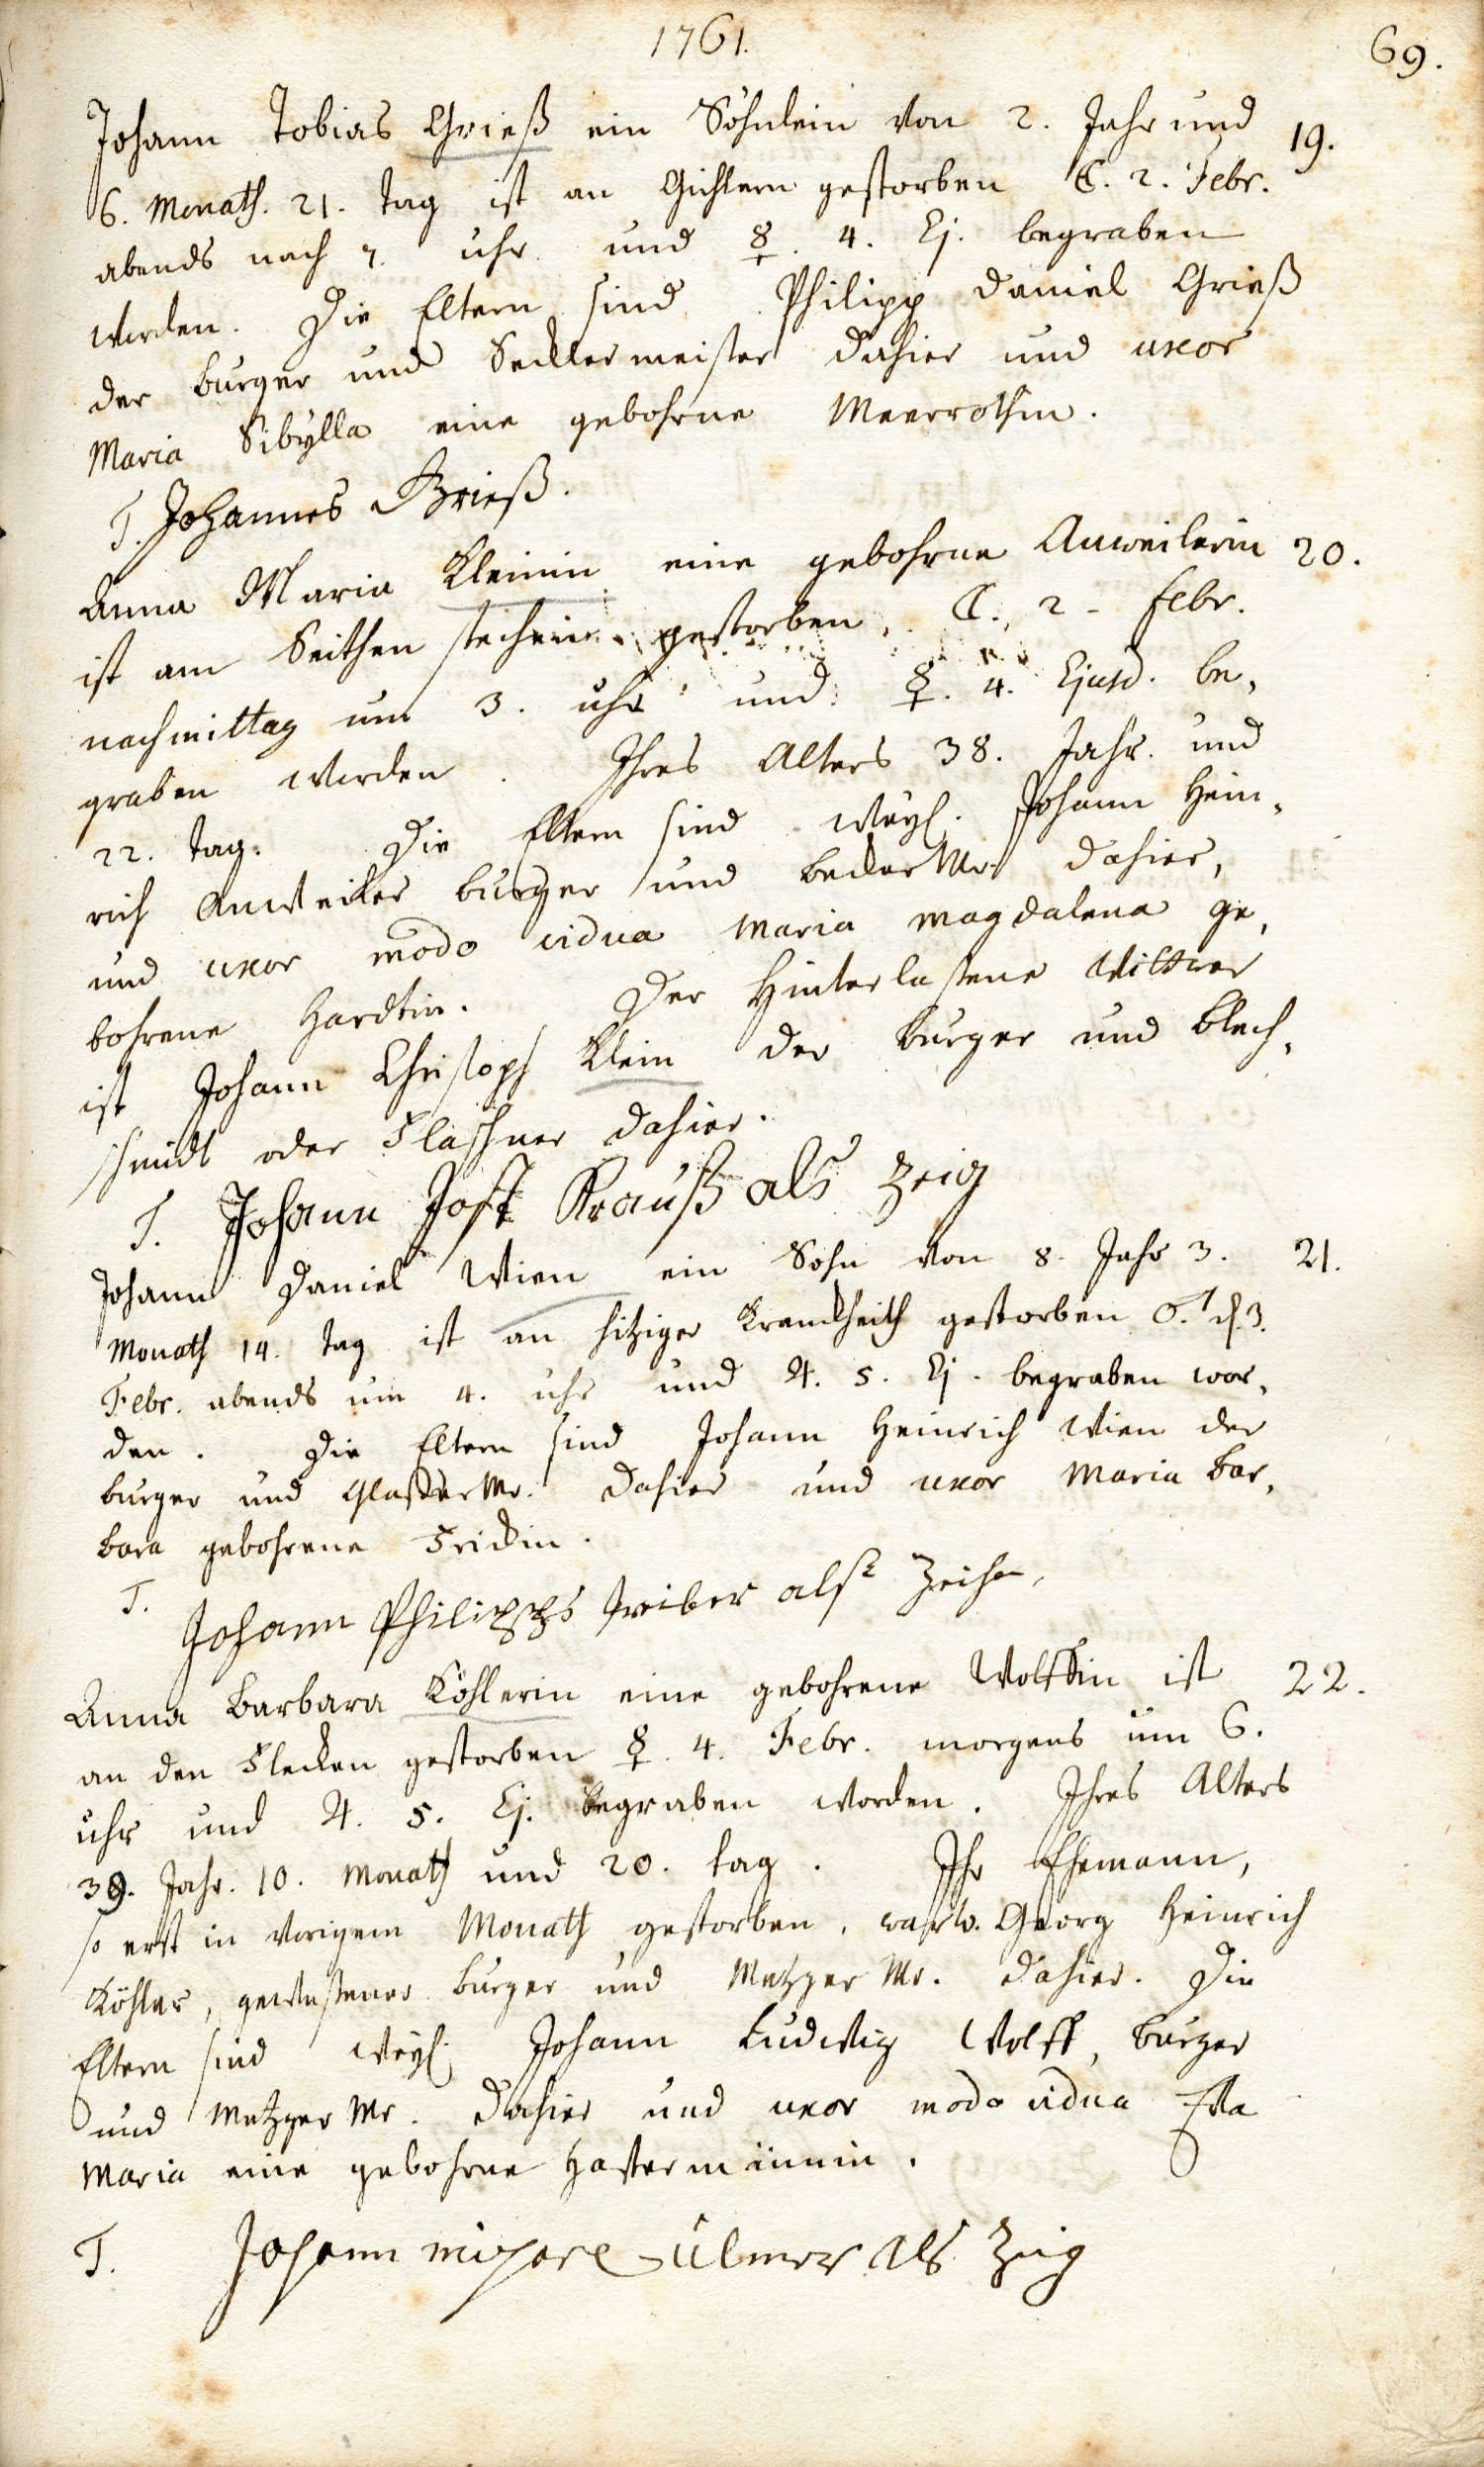 1761.
69.
Johann Tobias Grieß ein Söhnlein von 2. Jahr und 19.
6. Monath. 21. tag ist an Gichtern gestorben ☾. 2. Febr.
abends nach 7. uhr und ☿. 4. Ej. begraben
worden. Die Eltern sind Philipp Daniel Grieß
der burger und Secklermeister dahier und uxor
Maria Sibÿlla eine gebohrne Meerrothin.
T. Johannes Grieß.
Anna Maria Kleinin eine gebohrne Anweilerin 20.
ist am Seithen stechen gestorben, ☾. 2 - febr.
nachmittag um 3. uhr und ☿. 4. Ejusd. be,
graben worden. Ihres Alters 38. Jahr und
22. tag. Die Eltern sind weyl. Johann Hein,
rich Anweiler burger und becker Mr. dahier,
und uxor modo vidua Maria Magdalena ge,
bohrene Hardtin. Der Hinterlaßene Wittwer
ist Johann Christoph Klein der burger und blech,
schmidt oder Flaschner dahier.
T. Johann Jost Krauß als Zeig
Johann Daniel Wien ein Sohn von 8. Jahr 3. 21.
Monath 14. tag ist an hitziger Kranckheith gestorben ♂. d. 3.
Febr. abends um 4. uhr und ♃. 5. Ej. begraben wor,
den. Die Eltern sind Johann Heinrich Wien der
burger und Glaßer Mr. dahier und uxor Maria bar,
bara gebohrene Frickin.
T. Johann Philipps Treiber alß Zeihen,
Anna Barbara Köhlerin eine gebohrene Wolffin ist 22.
an den Flecken gestorben ☿. 4. Febr. morgens um 6.
uhr und ♃. 5. Ej. begraben worden. Ihres Alters
39. Jahr. 10. Monath und 20. tag. Ihr Ehemann,
so erst in vorigem Monath gestorben, war Georg Heinrich
Köhler, geweßener burger und Metzger Mr. dahier. Die
Eltern sind weyl. Johann Ludwig Wolff, burger
und Metzger Mr. dahier und uxor modo vidua Eva
Maria eine gebohrne Hastermännin.
T. Johann michael Ulmer als Zeig